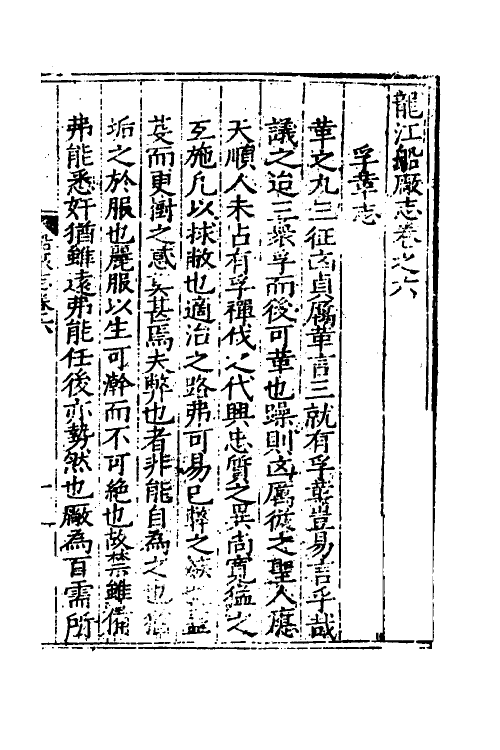 龍江船廠志卷之六
孚革志
革之九三征凶貞厲革言三就有孚革豈易言乎哉
議之迨三衆孚而後可革也躁則凶厲從之聖人應
天順人未占有孚禪伐之代興忠質之異尚寬猛之
互施凡以捄敝也適治之路弗可易已弊之
芟而更樹之感莫甚焉夫弊也者非能自為之也猶
垢之於服也麗服以生可澣而不可絶也故禁雖備
弗能悉奸猶雖遠弗能任後亦勢然也廠為百需所
船廠志卷六
一